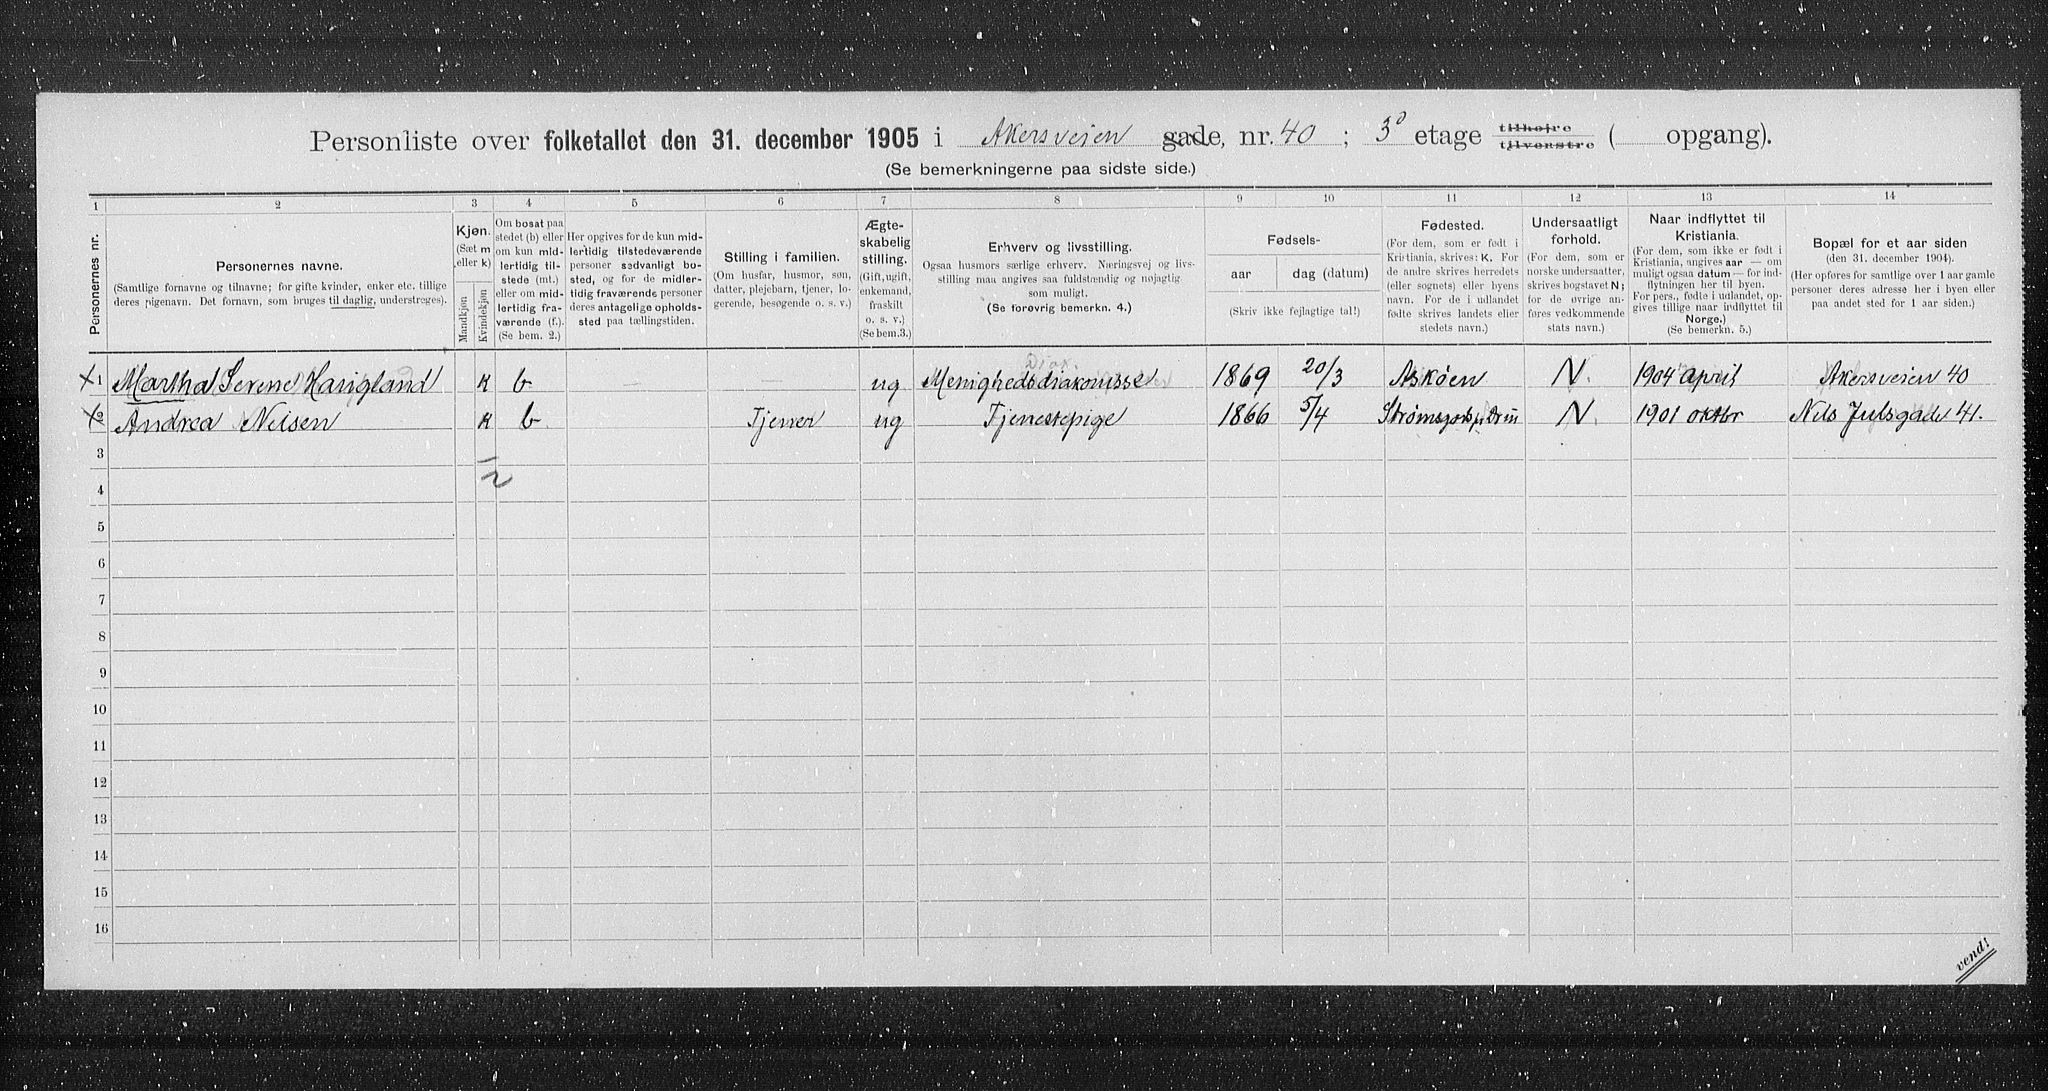 Personliste over folketallet den 31. december 1905 i Akersveien gade, nr. 40 ; 3° etage tilhøjre tilvenstre ( opgang).
(Se bemerkningerne paa sidste side.)
1 2 3 4 5 6 7 8 9 10 11 12 13 14
Personernes nr.
Personernes navne.
(Samtlige fornavne og tilnavne; for gifte kvinder, enker etc. tillige
deres pigenavn. Det fornavn, som bruges til daglig, understreges).
Kjøn.
(Sæt m
eller k)
Mandkjøn
Kvindekjøn
Om bosat paa
stedet (b) eller
om kun mid-
lertidig til-
stede (mt.)
eller om mid-
lertidig fra-
værende (f.).
(Se bem. 2.)
Her opgives for de kun mid-
lertidig tilstedeværende
personer sædvanligt bo-
sted, og for de midler-
tidig fraværende personer
deres antagelige opholds-
sted paa tællingstiden.
Stilling i familien.
(Om husfar, husmor, søn,
datter, plejebarn, tjener, lo-
gerende, besøgende o. s. v.)
Ægte-
skabelig
stilling.
(Gift, ugift,
enkemand,
fraskilt
o. s. v.)
(Se bem. 3.)
Erhverv og livsstilling.
Ogsaa husmors særlige erhverv. Næringsvej og livs-
stilling maa angives saa fuldstændig og nøjagtig
som muligt.
(Se forøvrig bemerkn. 4.)
Fødsels-
aar dag (datum)
(Skriv ikke fejlagtige tal!)
Fødested.
(For dem, som er født i
Kristiania, skrives: K. For
de andre skrives herredets
(eller sognets) eller byens
navn. For de i udlandet
fødte skrives landets eller
stedets navn.)
Undersaatligt
forhold.
(For dem, som er
norske undersaatter,
skrives bogstavet N;
for de øvrige an-
føres vedkommende
stats navn.)
Naar indflyttet til
Kristiania.
(For dem, som ikke er født i
Kristiania, angives aar — om
muligt ogsaa datum — for ind-
flytningen her til byen.
For pers., fødte i udlandet, op-
gives tillige naar indflyttet til
Norge.)
(Se bemerkn. 5.)
Bopæl for et aar siden
(den 31. december 1904).
(Her opføres for samtlige over 1 aar gamle
personer deres adresse her i byen eller
paa andet sted for 1 aar siden.)
Diak.
1 Martha Serene Haugland k b — — ug Menighedsdiakonisse 1869 20/3 Askøen N. 1904 april Akersveien 40
2 Andrea Nilsen k b Tjener ug Tjenestepige 1866 5/4 N. 1901 oktbr Nils Julsgade 41.
3
4 2
5
6
7
8
9
10
11
12
13
14
15
16
vend!